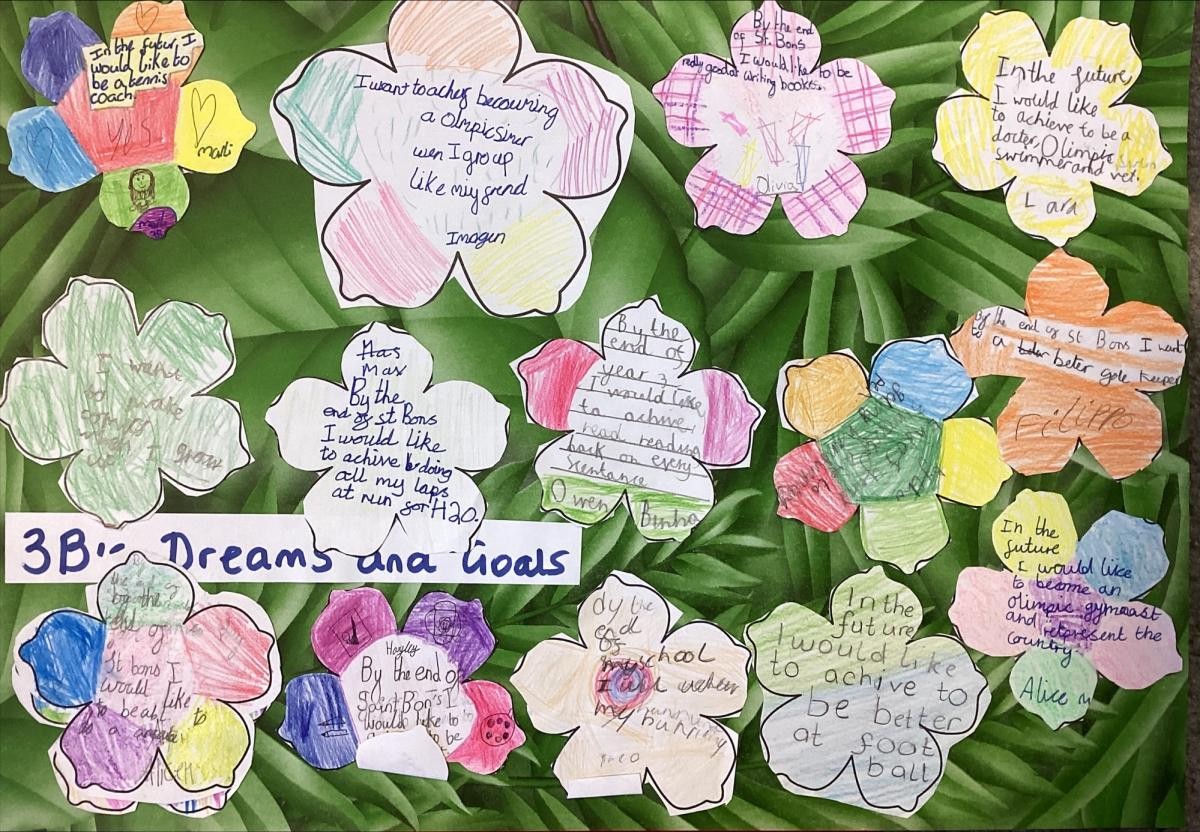 In the futur I
would like to
be a tennis
coach
yes
marli
I want to achev becouning
a Olmpic simr
wen I gro up
like miy srend
Imagen
By the end
of St. Bons
I would like to be
really good at writing bookes.
Olivia
In the future
I would like
to achieve to be a
docter, Olimpic
swimmer and vet.
Lara
I want
to make
when I
Has
Max
By the
end of st Bons
I would like
to achive by doing
all my laps
at run for H2O.
By the
end of
year 3
I would like
to achive
read reading
back on every
Scentance
Owen Binho
By the end of St Bons I want
to a beter gole keeper
Filippo
3B's Dreams and Goals
the end of
St bons I
would like
to
Hayley
By the end of
Saint Bon's I
would like to
be
dy the
end
of
my school
I
my
In the
future
I would like
to achive to
be better
at foot
ball
In the
future
I would like
to become an
Olimpic gymnast
and represent the
country.
Alice m